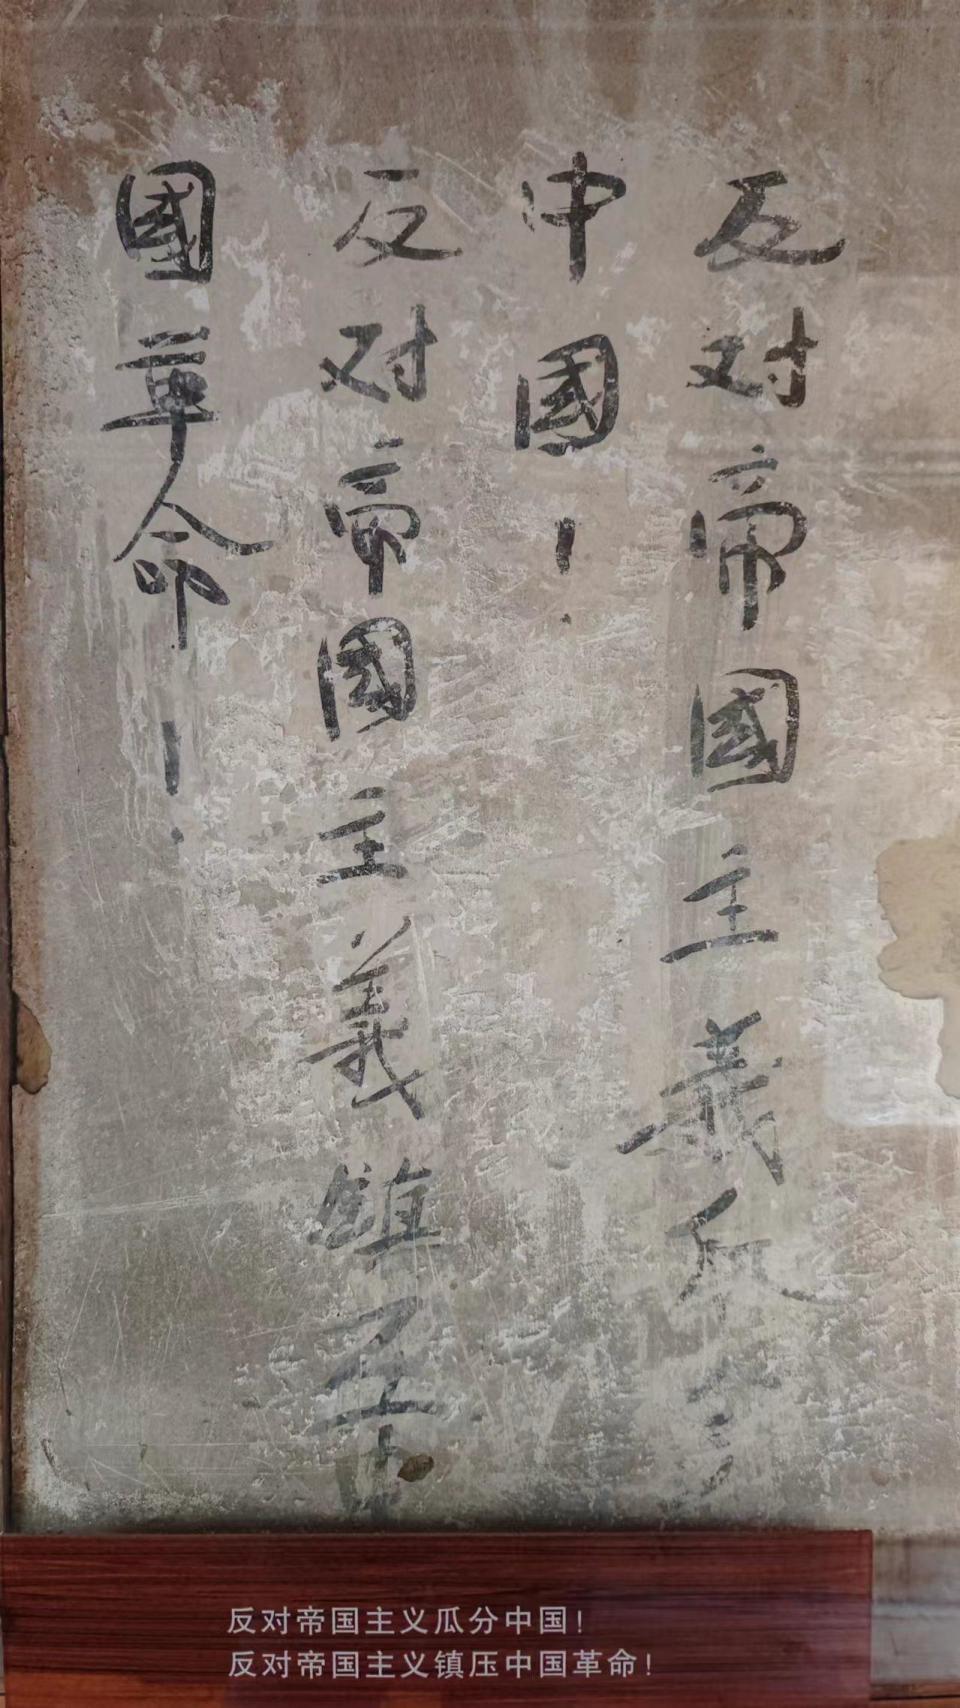 反对帝國主義瓜分
中國！
反对帝國主義鎮压中
國革命！
反对帝国主义瓜分中国！
反对帝国主义镇压中国革命！